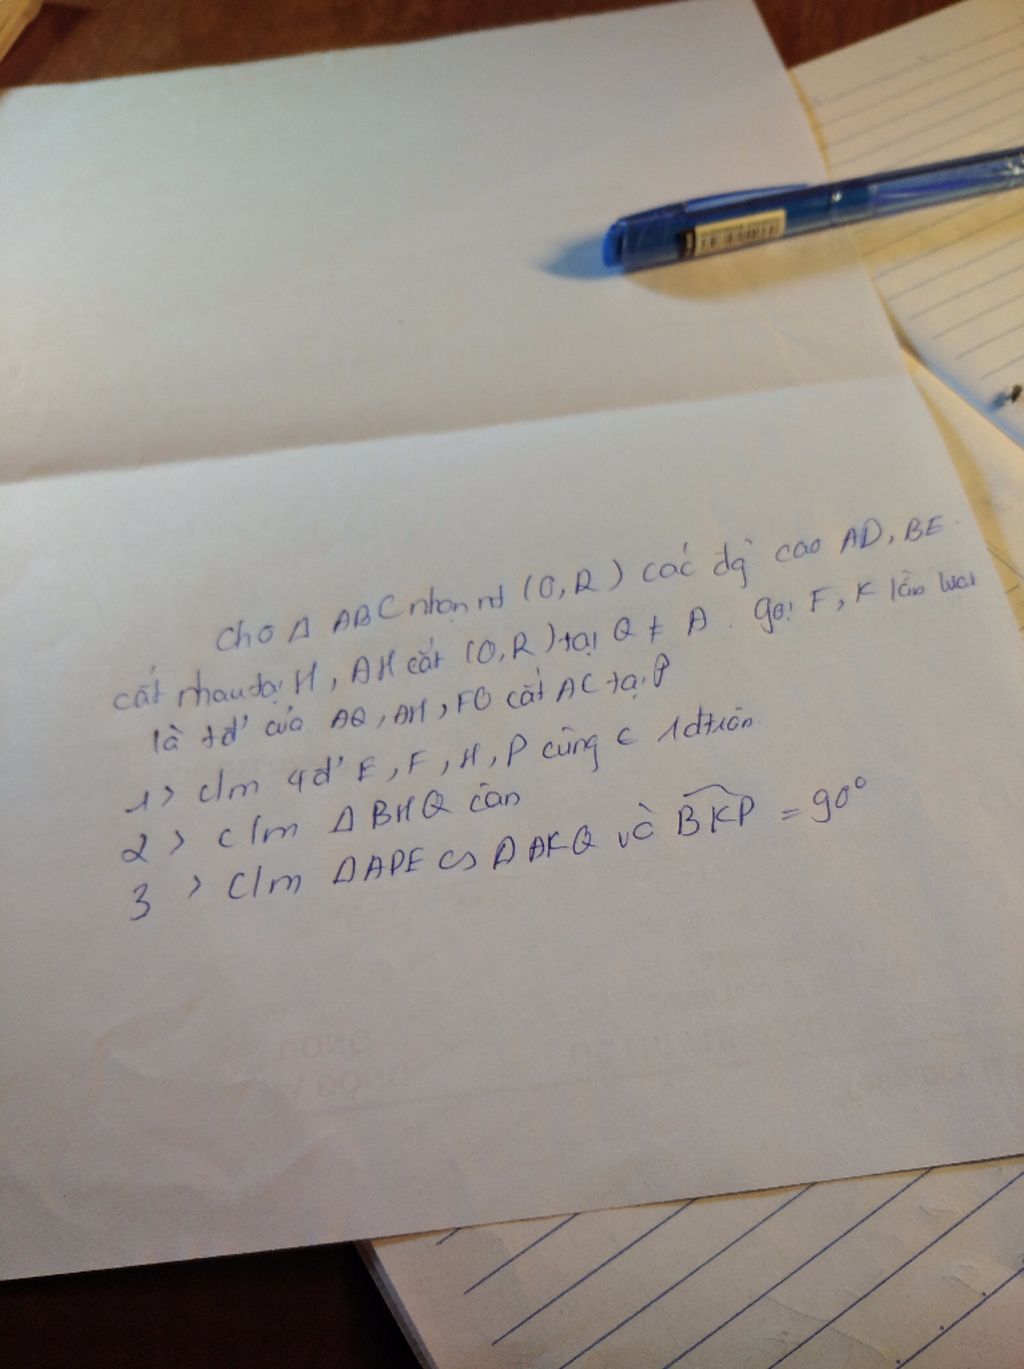 Cho Δ ABC nhọn nt (O,R) các đg cao AD, BE
cắt nhau tại H, AH cắt (O,R) tại Q ≠ A. gọi F, K lần lượt
là tđ' của AQ, AH, FO cắt AC tại P
1> c/m 4 đ' E, F, H, P cùng ∈ 1 đtròn
2> c/m Δ BHQ cân
3> c/m ΔAPE ∽ Δ AKQ và BKP = 90°